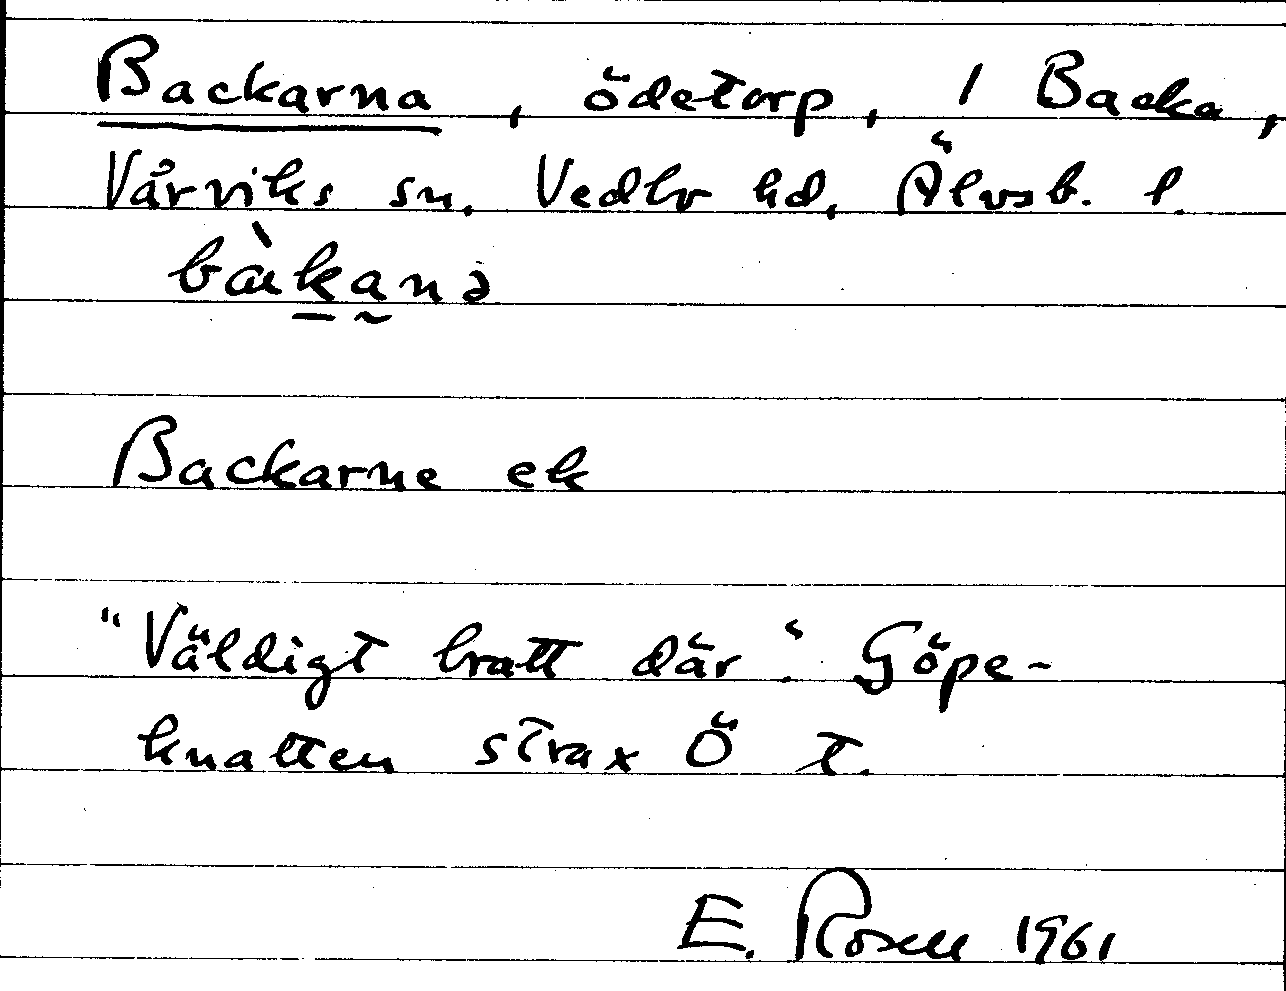 Backarna, ödetorp, 1 Backa,
Vårviks sn. Vedbo hd, Älvsb. l.
bàkanə
Backarne ek
"Väldigt bratt där". Göpe-
knatten strax Ö t.
E. Rosell 1961